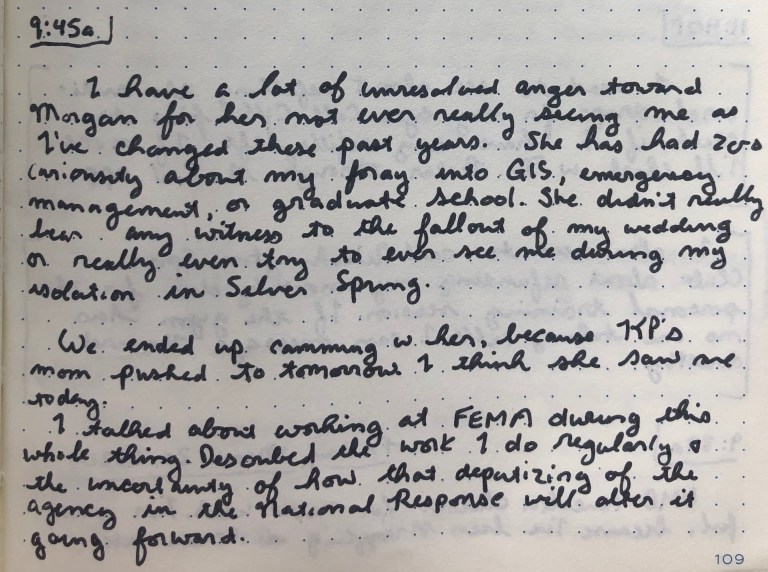 9:45a
I have a lot of unresolved anger toward
Morgan for her not ever really seeing me as
I've changed these past years. She has had zero
curiousity about my foray into GIS, emergency
management, or graduate school. She didn't really
bear any witness to the fallout of my wedding
or really even try to ever see me during my
isolation in Silver Spring.
We ended up camming w her, because KP's
mom pushed to tomorrow I think she saw me
today.
I talked about working at FEMA during this
whole thing. Described the work I do regularly &
the uncertainty of how that deputizing of the
agency in the National Response will alter it
going forward.
109